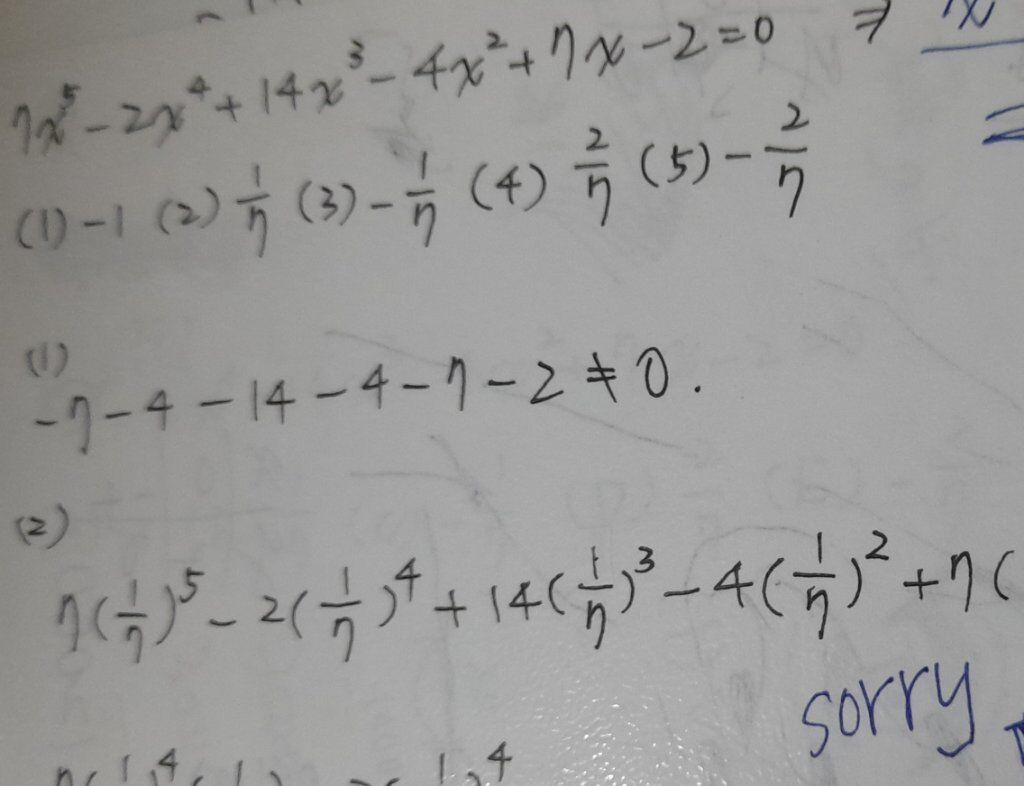 7x⁵-2x⁴+14x³-4x²+7x-2=0 ⇒
(1)-1 (2) 1/7 (3)-1/7 (4) 2/7 (5)-2/7
(1)
-7-4-14-4-7-2≠0.
(2)
7(1/7)⁵-2(1/7)⁴+14(1/7)³-4(1/7)²+7(
sorry